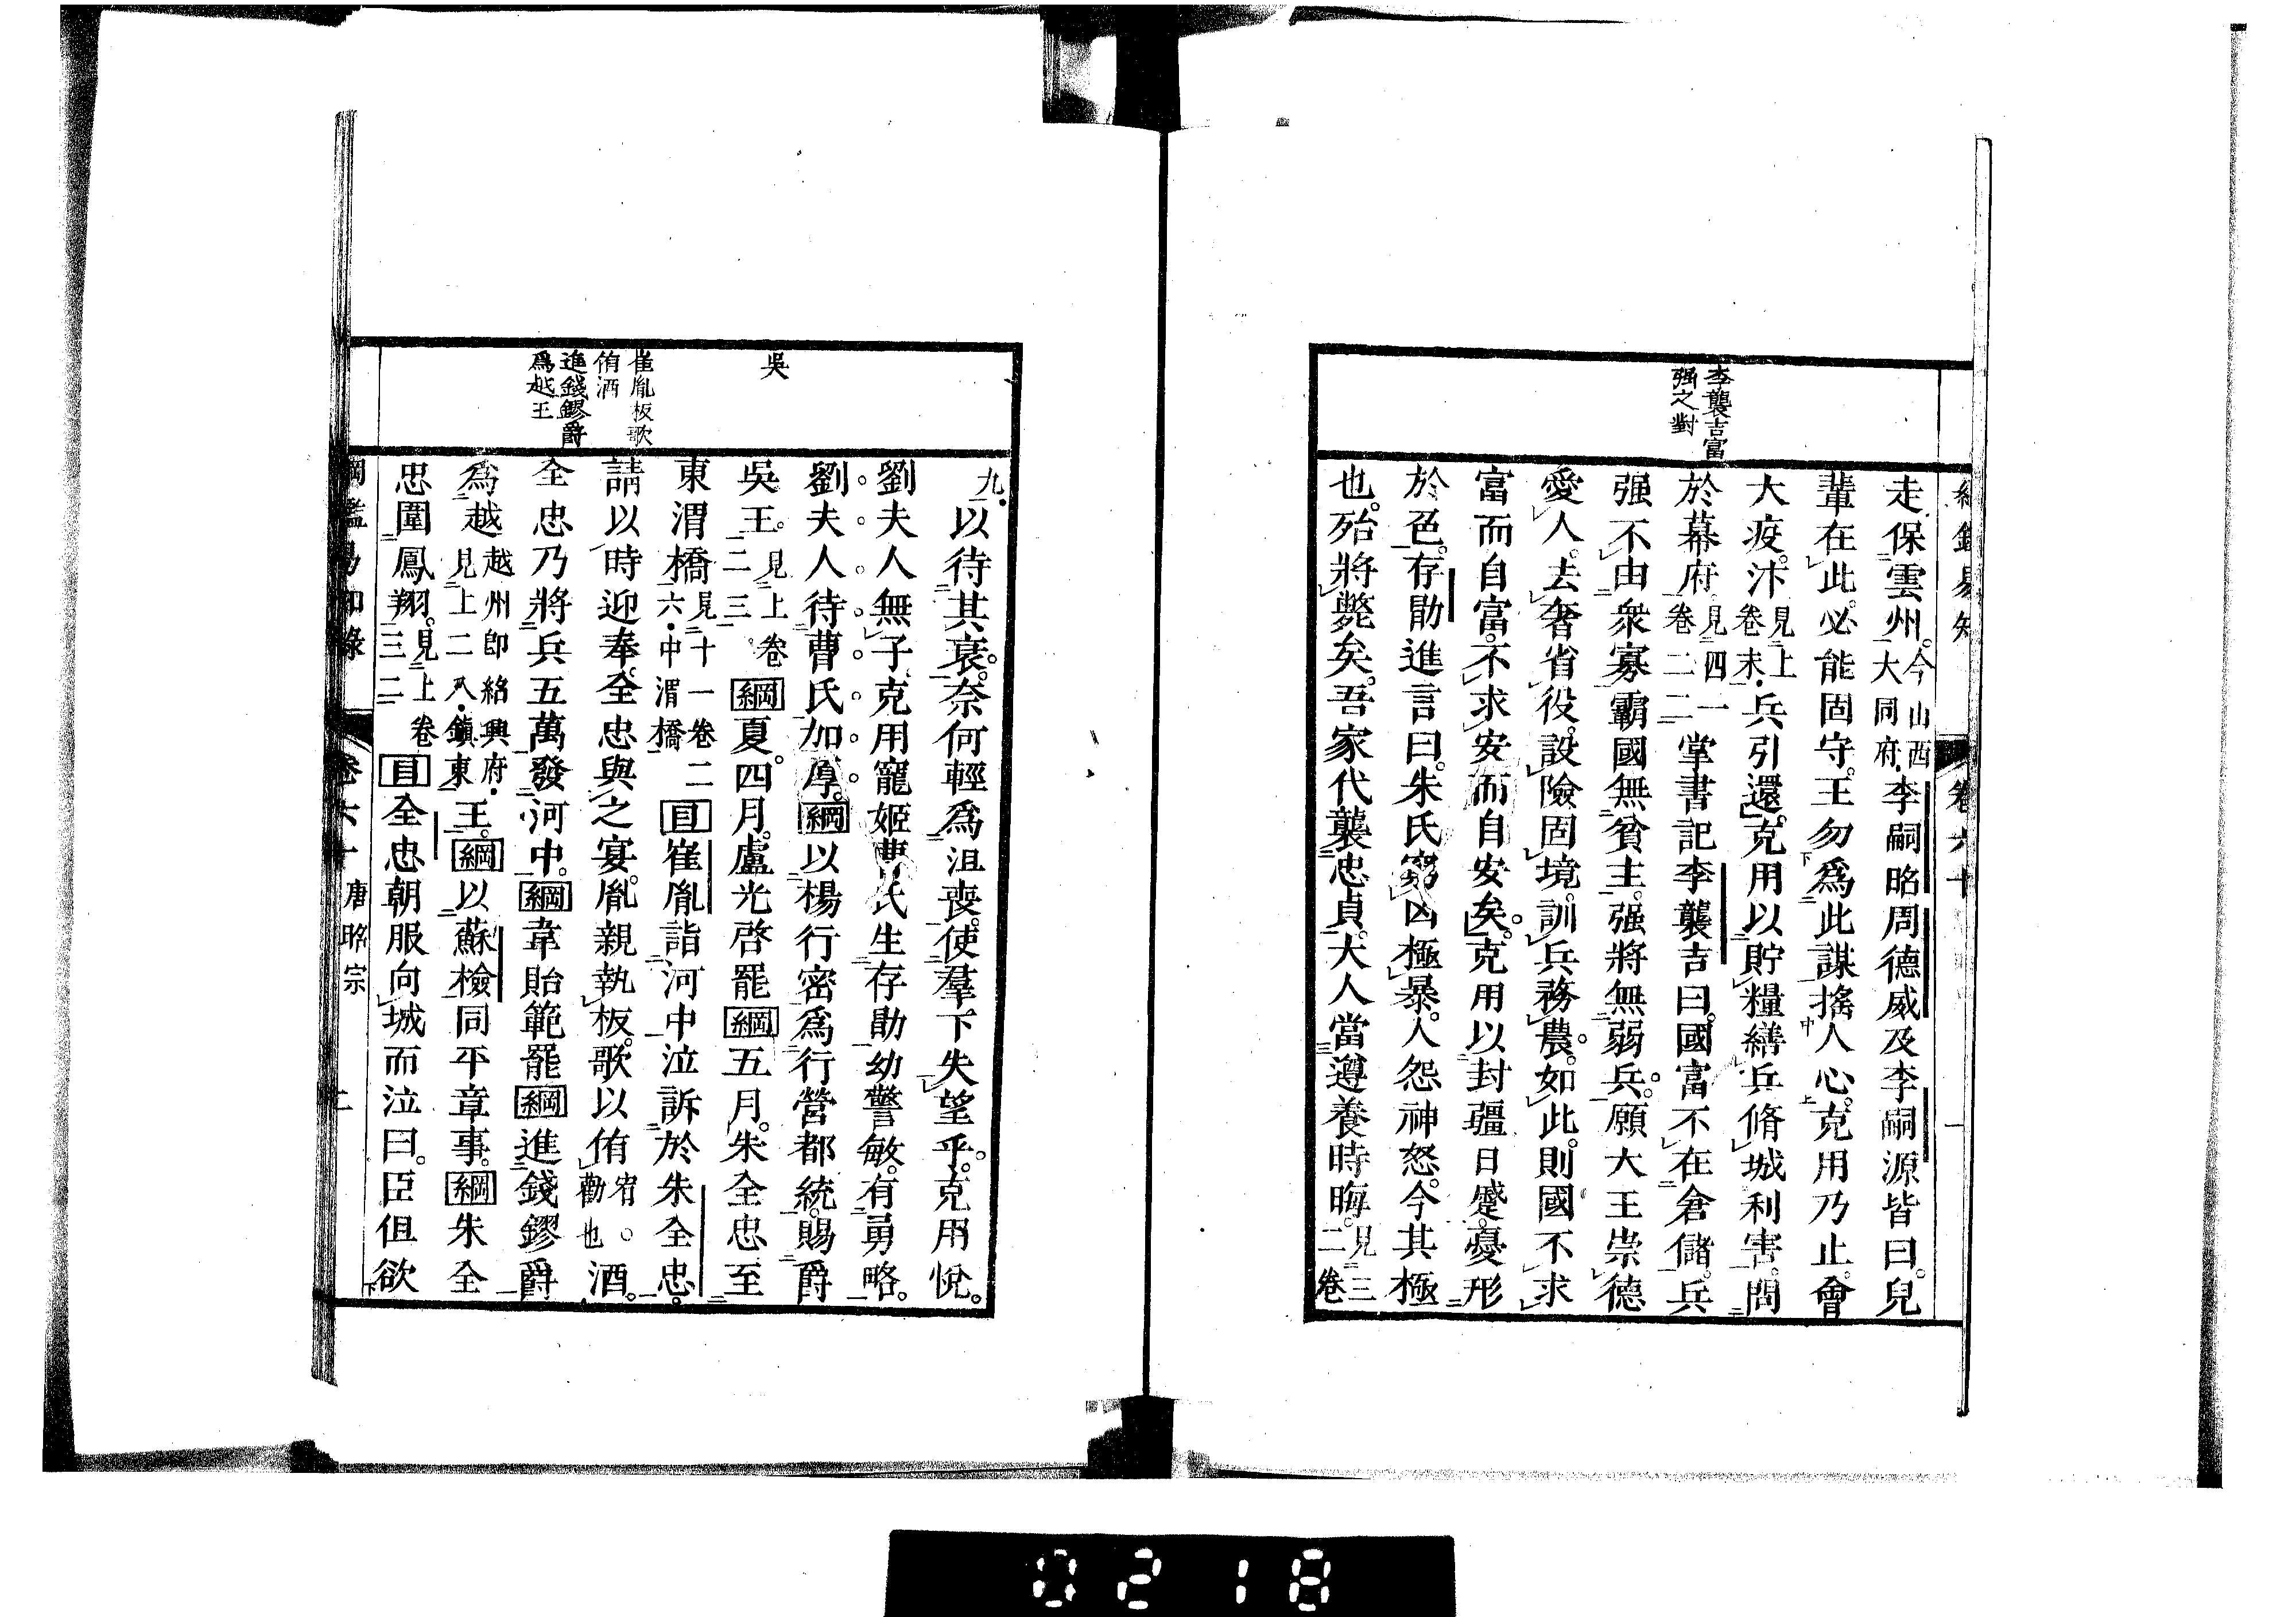 李襲吉富
强之對
走保雲州。今山西大同府・李嗣昭周德威及李嗣源皆曰。兒
輩在此。必能固守。王勿爲此謀搖人心。克用乃止。會
大疫。汴見上卷末・兵引還。克用以貯糧繕兵脩城利害。問
於幕府。見四一卷二二掌書記李襲吉曰。國富不在倉儲。兵
强不由衆寡。霸國無貧主。强將無弱兵。願大王崇德
愛人。去奢省役。設險固境。訓兵務農。如此。則國不求
富而自富。不求安而自安矣。克用以封疆日蹙。憂形
於色。存勖進言曰。朱氏窮凶極暴。人怨神怒。今其極
也。殆將斃矣。吾家代襲忠貞。大人當遵養時晦。見三二卷
卷六十
一
吳
崔胤板歌
侑酒
進錢鏐爵
爲越王
九・以待其衰。奈何輕爲沮喪。使羣下失望乎。克用悅。
劉夫人無子。克用寵姬曹氏生存勖。幼警敏。有勇略。
劉夫人待曹氏加厚。綱以楊行密爲行營都統。賜爵
吳王。見上卷二三綱夏。四月。盧光啓罷綱五月。朱全忠至
東渭橋見十一卷二六・中渭橋目崔胤詣河中泣訴於朱全忠。
請以時迎奉。全忠與之宴。胤親執板。歌以侑宥。勸也酒。
全忠乃將兵五萬發河中。綱韋貽範罷綱進錢鏐爵
爲越越州卽紹興府・見上二八・鎭東王。綱以蘇檢同平章事。綱朱全
忠圍鳳翔。見上卷三二目全忠朝服向城而泣曰。臣但欲
綱鑑易知錄 卷六十 唐昭宗 二
0218